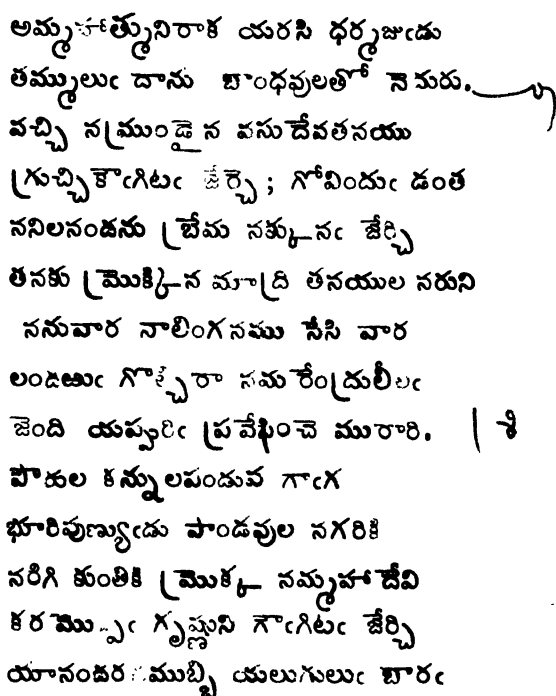 అమ్మహాత్మునిరాక యరసి ధర్మజుఁడు
తమ్ములుఁ దాను బాంధవులతో నెదురు.
వచ్చి నమ్రుండైన వసుదేవతనయు
గ్రుచ్చికౌఁగిటఁ జేర్చె; గోవిందుఁ డంత
ననిలనందను బ్రేమ నక్కునఁ జేర్చి
తనకు మ్రొక్కిన మాద్రి తనయుల నరుని
ననువార నాలింగనము సేసి వార
లందఱుఁ గొల్చిరా నమరేంద్రులీలఁ
జెంది యప్పురిఁ బ్రవేశించె మురారి.
పౌరుల కన్నులపండువ గాఁగ
భూరిపుణ్యుఁడు పాండవుల నగరికి
నరిగి కుంతికి మ్రొక్క నమ్మహాదేవి
కర మొప్పఁ గృష్ణుని గౌఁగిటఁ జేర్చి
యానందరసముబ్బి యలుగులుఁ బారఁ